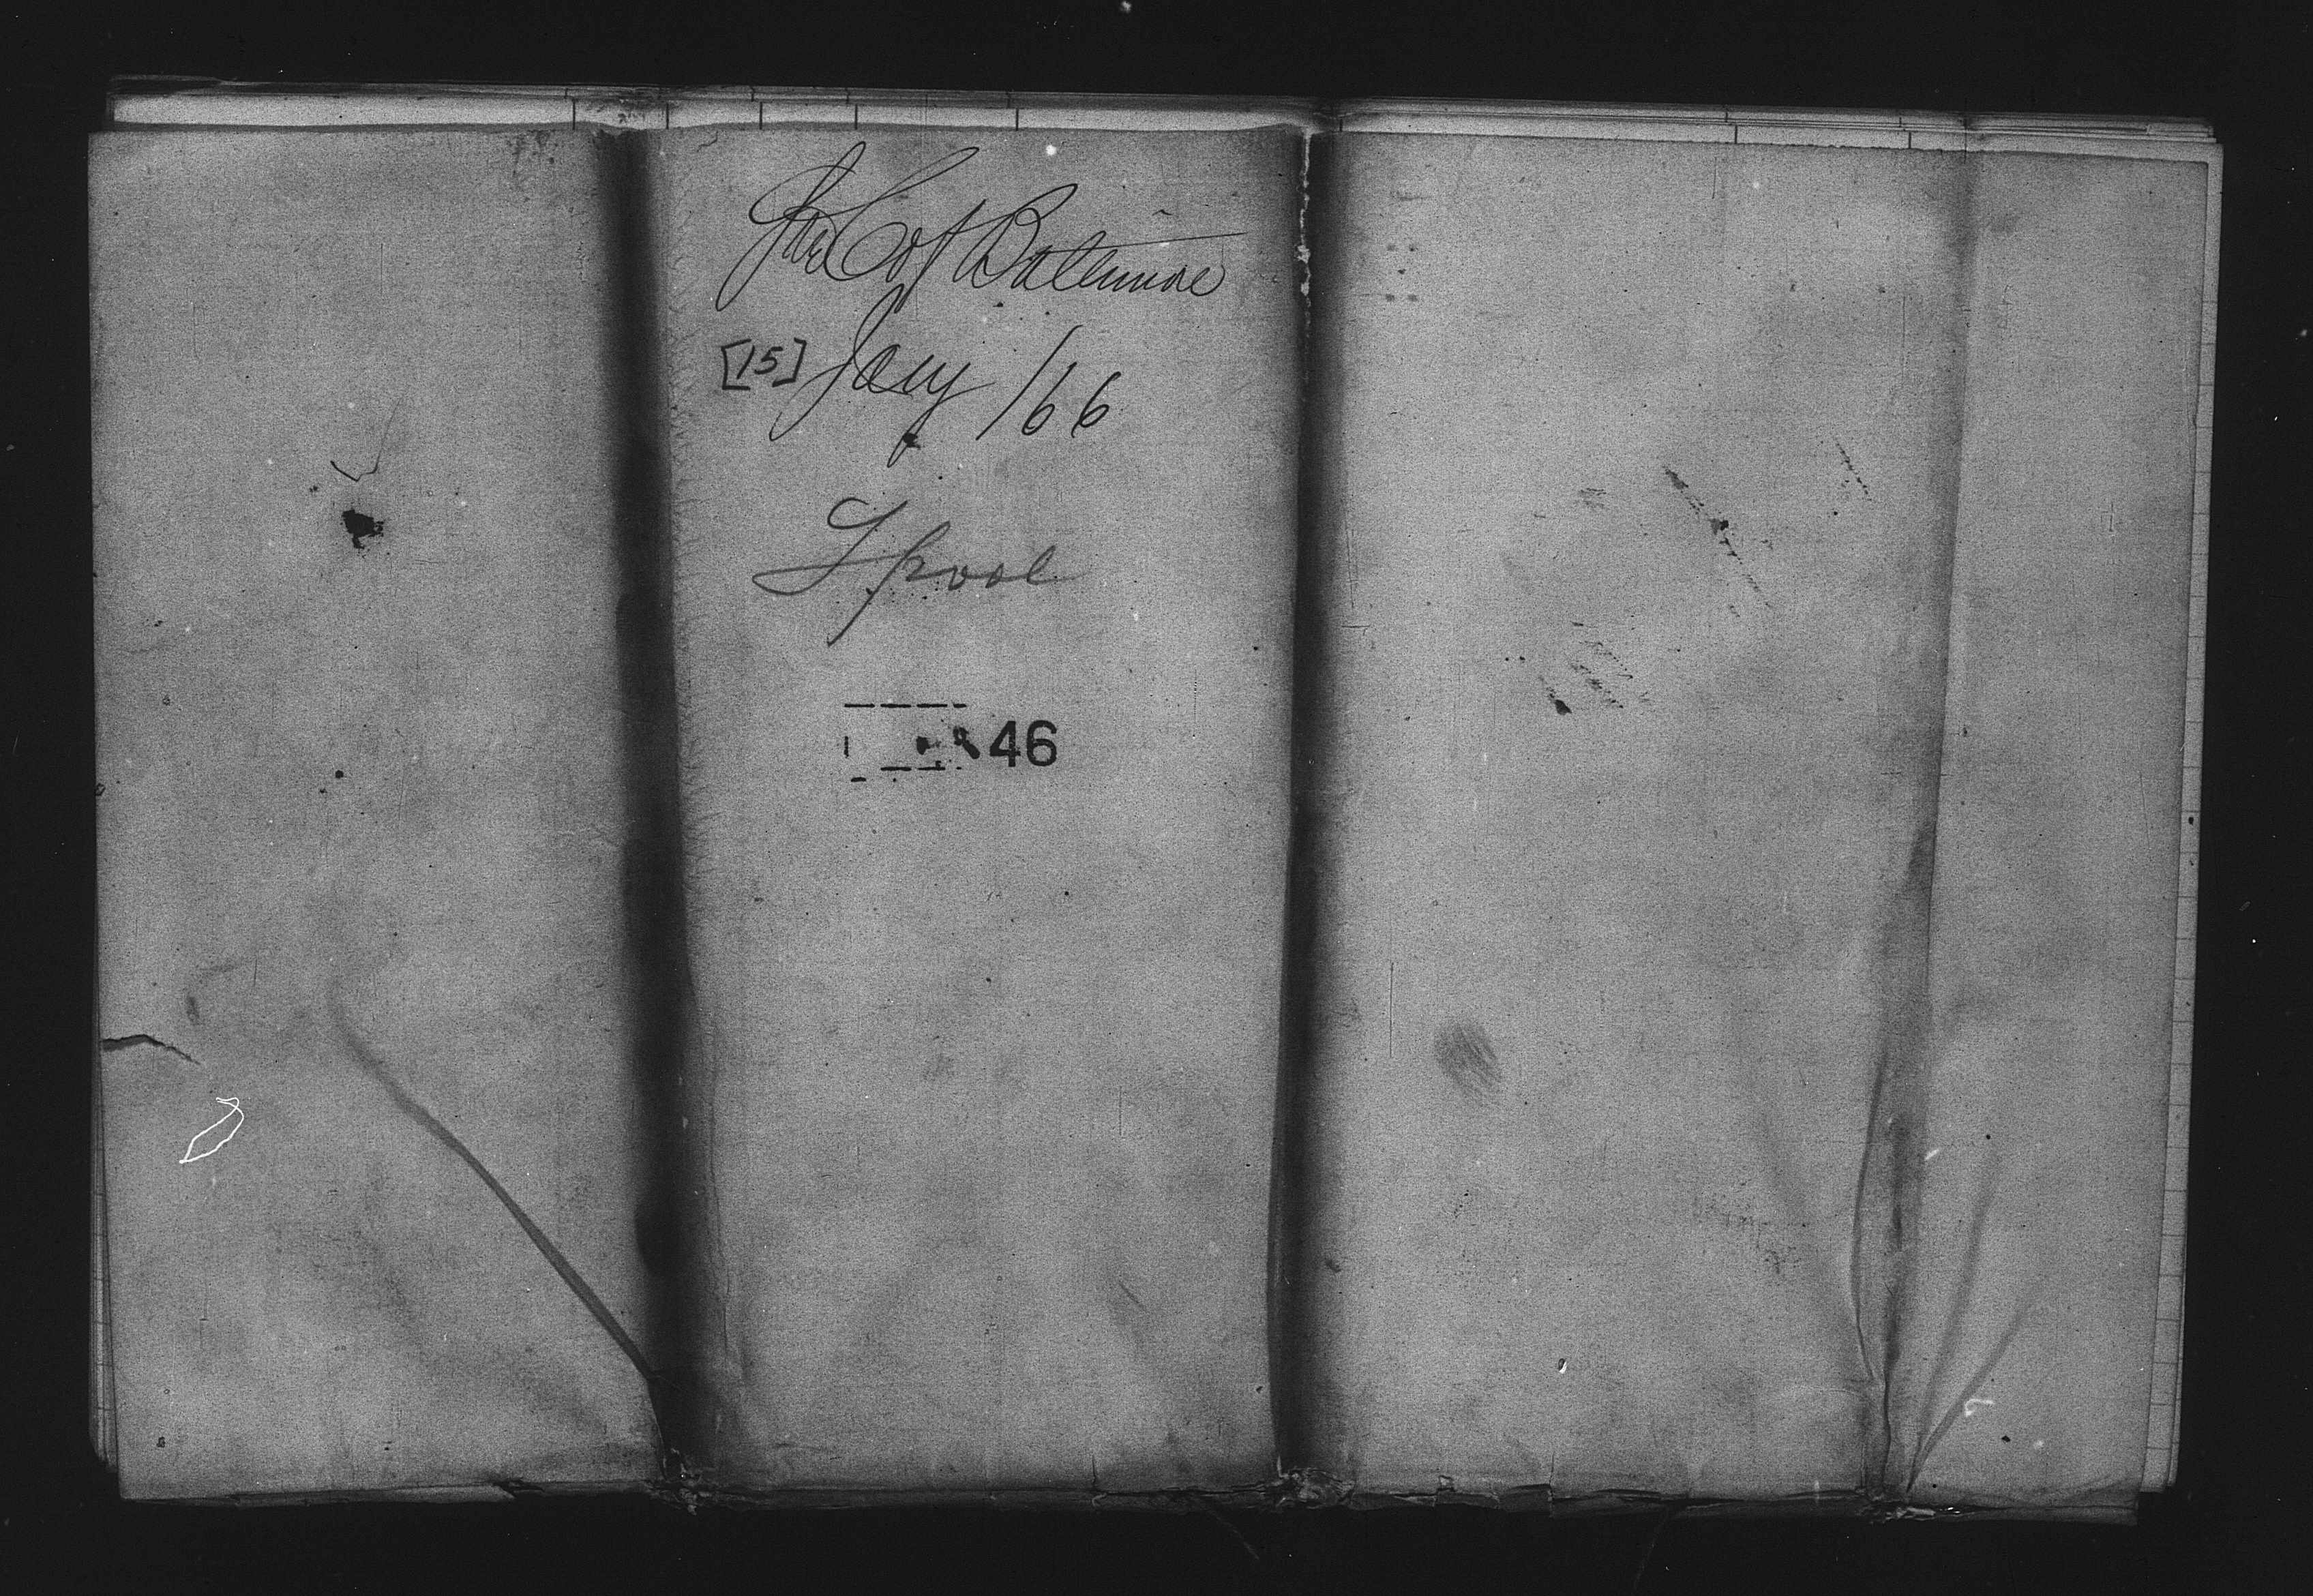 Str C of Baltimore
[15] Jany /66
Lpool
46